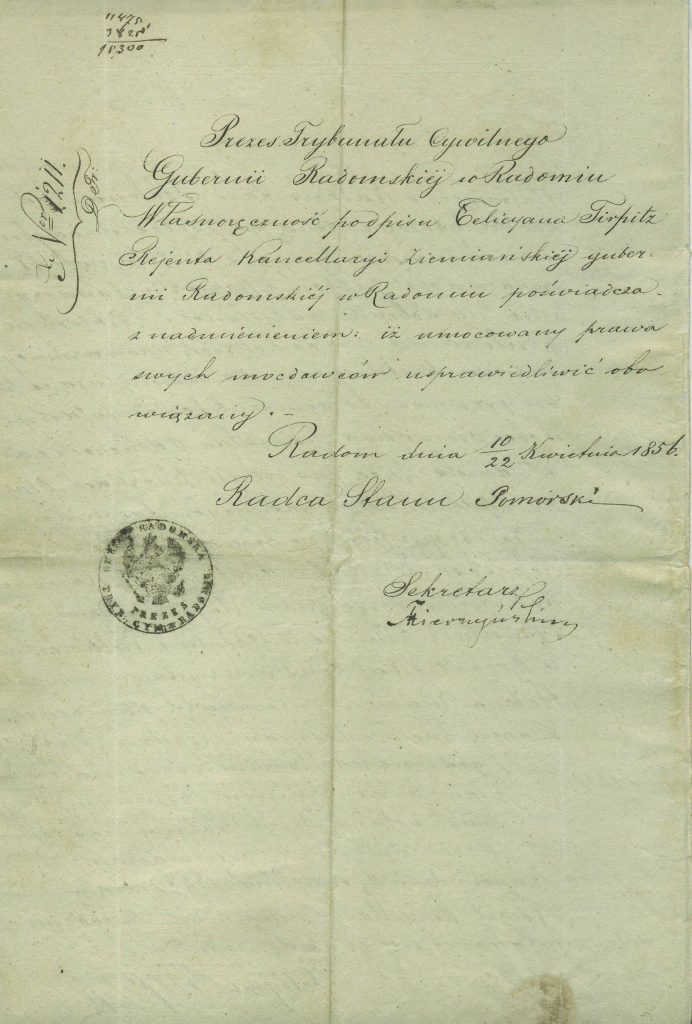 11475
3825
15300
Nor 1211.
Prezes Trybunału Cywilnego
Gubernii Radomskiéj w Radomiu
Własnoręczność podpisu Felicyana Tirpitz
Rejenta Kancellaryi Ziemiańskiéj guber-
nii Radomskiéj w Radomiu poświadcza-
z nadmienieniem: iż umocowany prawa
swych mocdawców usprawiedliwić obo
wiązany. -
Radom dnia 10/22 Kwietnia 1856.
Radca Stanu Pomorski
GUBER. RADOMSKA
PREZES
TRYB. CYW. RADOM
Sekretarz